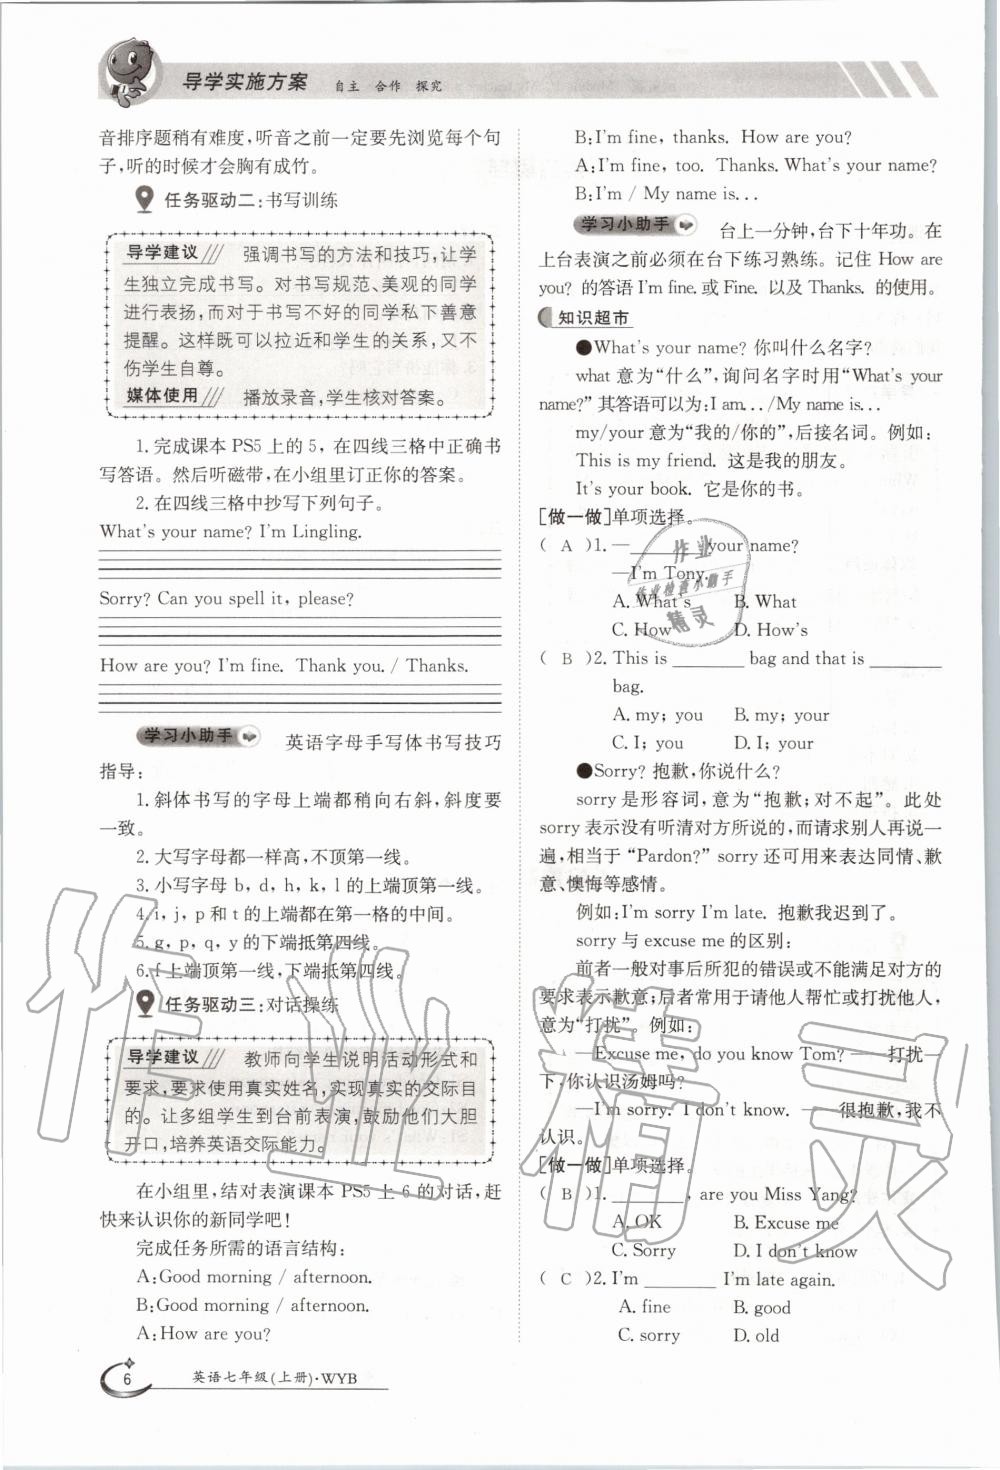 导学实施方案 自主 合作 探究
音排序题稍有难度,听音之前一定要先浏览每个句
子,听的时候才会胸有成竹。
任务驱动二:书写训练
导学建议 强调书写的方法和技巧,让学
生独立完成书写。对书写规范、美观的同学
进行表扬,而对于书写不好的同学私下善意
提醒。这样既可以拉近和学生的关系,又不
伤学生自尊。
媒体使用 播放录音,学生核对答案。
1.完成课本 PS5 上的 5,在四线三格中正确书
写答语。然后听磁带,在小组里订正你的答案。
2.在四线三格中抄写下列句子。
What's your name? I'm Lingling.
Sorry? Can you spell it, please?
How are you? I'm fine. Thank you. / Thanks.
学习小助手 英语字母手写体书写技巧
指导:
1.斜体书写的字母上端都稍向右斜,斜度要
一致。
2.大写字母都一样高,不顶第一线。
3.小写字母 b,d,h,k,l 的上端顶第一线。
4.i,j,p和t的上端都在第一格的中间。
5.g,p,q,y的下端抵第四线。
6.f上端顶第一线,下端抵第四线。
任务驱动三:对话操练
导学建议 教师向学生说明活动形式和
要求,要求使用真实姓名,实现真实的交际目
的。让多组学生到台前表演,鼓励他们大胆
开口,培养英语交际能力。
在小组里,结对表演课本 PS5 上 6 的对话,赶
快来认识你的新同学吧!
完成任务所需的语言结构:
A:Good morning / afternoon.
B:Good morning / afternoon.
A:How are you?
6 英语七年级(上册)·WYB
B:I'm fine, thanks. How are you?
A:I'm fine, too. Thanks. What's your name?
B:I'm / My name is...
学习小助手 台上一分钟,台下十年功。在
上台表演之前必须在台下练习熟练。记住 How are
you? 的答语 I'm fine. 或 Fine. 以及 Thanks. 的使用。
知识超市
●What's your name? 你叫什么名字?
what 意为“什么”,询问名字时用“What's your
name?” 其答语可以为:I am.../My name is...
my/your 意为“我的/你的”,后接名词。例如:
This is my friend. 这是我的朋友。
It's your book. 它是你的书。
[做一做]单项选择。
( A )1. —________ your name?
—I'm Tony.
A. What's B. What
C. How D. How's
( B )2. This is ________ bag and that is ________
bag.
A. my; you B. my; your
C. I; you D. I; your
●Sorry? 抱歉,你说什么?
sorry 是形容词,意为“抱歉;对不起”。此处
sorry 表示没有听清对方所说的,而请求别人再说一
遍,相当于 “Pardon?” sorry 还可用来表达同情、歉
意、懊悔等感情。
例如:I'm sorry I'm late. 抱歉我迟到了。
sorry 与 excuse me 的区别:
前者一般对事后所犯的错误或不能满足对方的
要求表示歉意;后者常用于请他人帮忙或打扰他人,
意为“打扰”。例如:
—Excuse me, do you know Tom? ——打扰一
下,你认识汤姆吗?
—I'm sorry. I don't know. ——很抱歉,我不
认识。
[做一做]单项选择。
( B )1. ________, are you Miss Yang?
A. OK B. Excuse me
C. Sorry D. I don't know
( C )2. I'm ________ I'm late again.
A. fine B. good
C. sorry D. old
作业
作业检查小助手
精灵
作业精灵